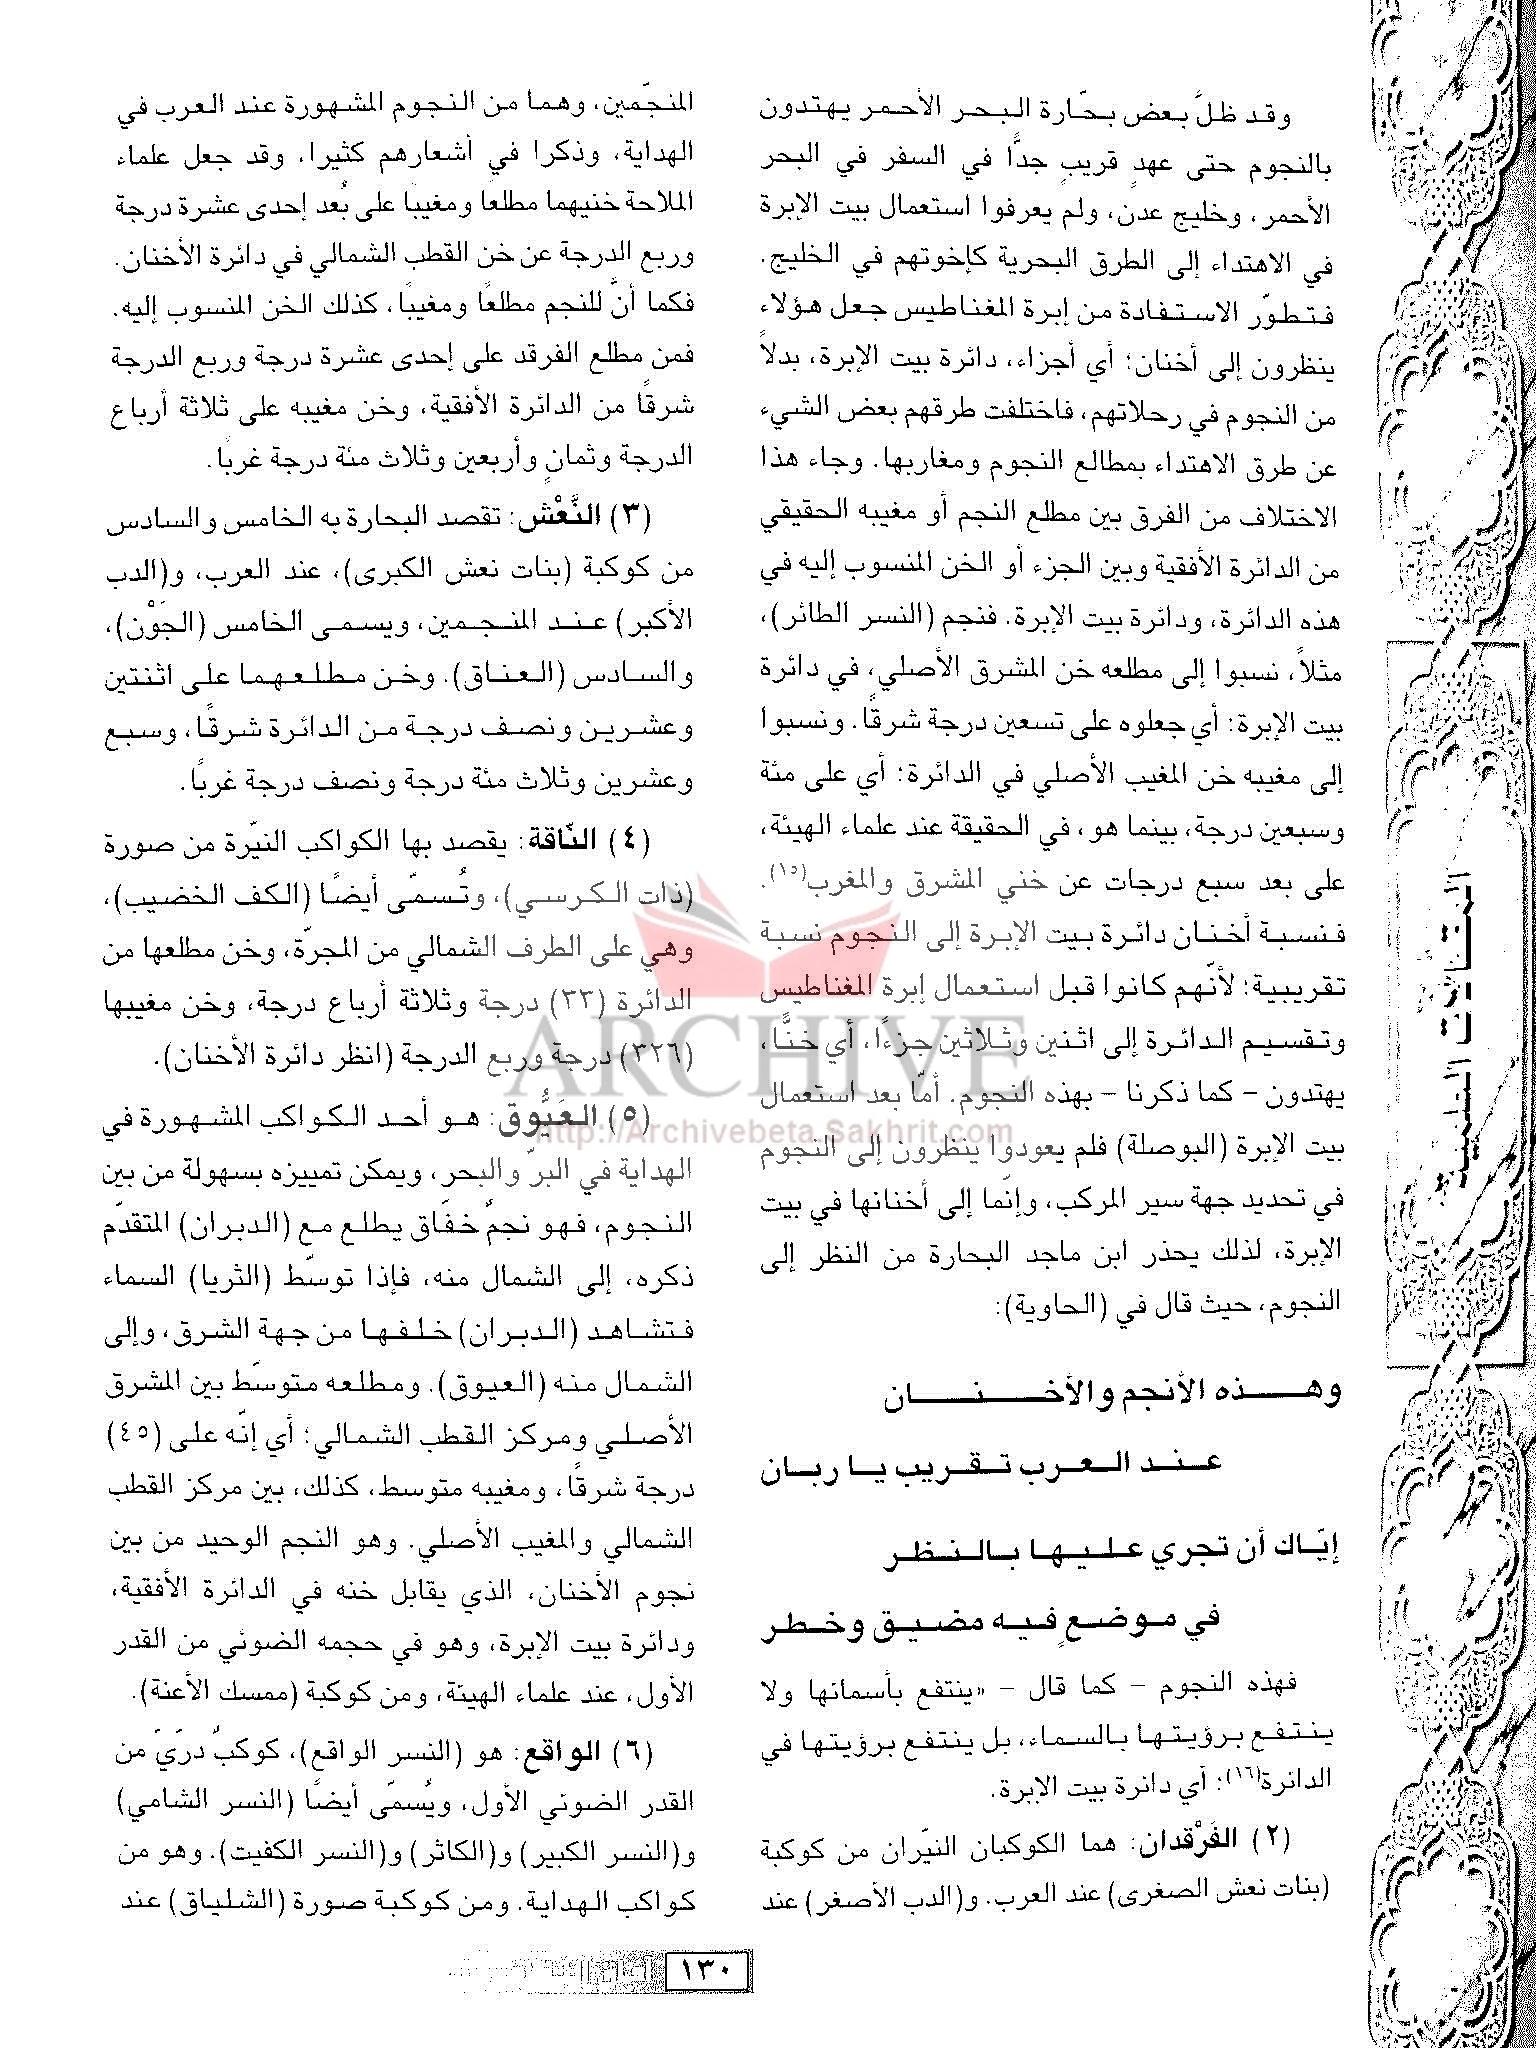 وقد ظلَّ بعض بحّارة البحر الأحمر يهتدون
بالنجوم حتى عهدٍ قريبٍ جدًّا في السفر في البحر
الأحمر، وخليج عدن، ولم يعرفوا استعمال بيت الإبرة
في الاهتداء إلى الطرق البحرية كإخوتهم في الخليج.
فتطوّر الاستفادة من إبرة المغناطيس جعل هؤلاء
ينظرون إلى أخنان؛ أي أجزاء، دائرة بيت الإبرة، بدلاً
من النجوم في رحلاتهم، فاختلفت طرقهم بعض الشيء
عن طرق الاهتداء بمطالع النجوم ومغاربها. وجاء هذا
الاختلاف من الفرق بين مطلع النجم أو مغيبه الحقيقي
من الدائرة الأفقية وبين الجزء أو الخن المنسوب إليه في
هذه الدائرة، ودائرة بيت الإبرة. فنجم (النسر الطائر)،
مثلاً، نسبوا إلى مطلعه خن المشرق الأصلي، في دائرة
بيت الإبرة؛ أي جعلوه على تسعين درجة شرقًا. ونسبوا
إلى مغيبه خن المغيب الأصلي في الدائرة؛ أي على مئة
وسبعين درجة، بينما هو، في الحقيقة عند علماء الهيئة،
على بعد سبع درجات عن خني المشرق والمغرب(١٥).
فنسبة أخنان دائرة بيت الإبرة إلى النجوم نسبة
تقريبية؛ لأنّهم كانوا قبل استعمال إبرة المغناطيس
وتقسيم الدائرة إلى اثنين وثلاثين جزءًا، أي خنًّا،
يهتدون – كما ذكرنا – بهذه النجوم. أمّا بعد استعمال
بيت الإبرة (البوصلة) فلم يعودوا ينظرون إلى النجوم
في تحديد جهة سير المركب، وإنّما إلى أخنانها في بيت
الإبرة، لذلك يحذر ابن ماجد البحارة من النظر إلى
النجوم، حيث قال في (الحاوية):
وهذه الأنجم والأخنان
عند العرب تقريب يا ربان
إيّاك أن تجري عليها بالنظر
في موضعٍ فيه مضيق وخطر
فهذه النجوم – كما قال – «ينتفع بأسمائها ولا
ينتفع برؤيتها بالسماء، بل ينتفع برؤيتها في
الدائرة(١٦)؛ أي دائرة بيت الإبرة.
(٢) الفَرْقدان: هما الكوكبان النيّران من كوكبة
(بنات نعش الصغرى) عند العرب. و(الدب الأصغر) عند
المنجّمين، وهما من النجوم المشهورة عند العرب في
الهداية، وذكرا في أشعارهم كثيرا، وقد جعل علماء
الملاحة خنيهما مطلعًا ومغيبًا على بُعد إحدى عشرة درجة
وربع الدرجة عن خن القطب الشمالي في دائرة الأخنان.
فكما أنَّ للنجم مطلعًا ومغيبًا، كذلك الخن المنسوب إليه.
فمن مطلع الفرقد على إحدى عشرة درجة وربع الدرجة
شرقًا من الدائرة الأفقية، وخن مغيبه على ثلاثة أرباع
الدرجة وثمانٍ وأربعين وثلاث مئة درجة غربًا.
(٣) النَّعْش: تقصد البحارة به الخامس والسادس
من كوكبة (بنات نعش الكبرى)، عند العرب، و(الدب
الأكبر) عند المنجمين، ويسمى الخامس (الجَوْن)،
والسادس (العناق). وخن مطلعهما على اثنتين
وعشرين ونصف درجة من الدائرة شرقًا، وسبع
وعشرين وثلاث مئة درجة ونصف درجة غربًا.
(٤) النّاقة: يقصد بها الكواكب النيّرة من صورة
(ذات الكرسي)، وتُسمّى أيضًا (الكف الخضيب)،
وهي على الطرف الشمالي من المجرّة، وخن مطلعها من
الدائرة (٣٣) درجة وثلاثة أرباع درجة، وخن مغيبها
(٣٢٦) درجة وربع الدرجة (انظر دائرة الأخنان).
(٥) العَيُّوق: هو أحد الكواكب المشهورة في
الهداية في البرّ والبحر، ويمكن تمييزه بسهولة من بين
النجوم، فهو نجمٌ خفّاق يطلع مع (الدبران) المتقدّم
ذكره، إلى الشمال منه، فإذا توسّط (الثريا) السماء
فتشاهد (الدبران) خلفها من جهة الشرق، وإلى
الشمال منه (العيوق). ومطلعه متوسّط بين المشرق
الأصلي ومركز القطب الشمالي؛ أي إنّه على (٤٥)
درجة شرقًا، ومغيبه متوسط، كذلك، بين مركز القطب
الشمالي والمغيب الأصلي. وهو النجم الوحيد من بين
نجوم الأخنان، الذي يقابل خنه في الدائرة الأفقية،
ودائرة بيت الإبرة، وهو في حجمه الضوئي من القدر
الأول، عند علماء الهيئة، ومن كوكبة (ممسك الأعنة).
(٦) الواقع: هو (النسر الواقع)، كوكبٌ درّيّ من
القدر الضوئي الأول، ويُسمّى أيضًا (النسر الشامي)
و(النسر الكبير) و(الكاثر) و(النسر الكفيت). وهو من
كواكب الهداية. ومن كوكبة صورة (الشلياق) عند
١٣٠
ARCHIVE
http://Archivebeta.Sakhrit.com